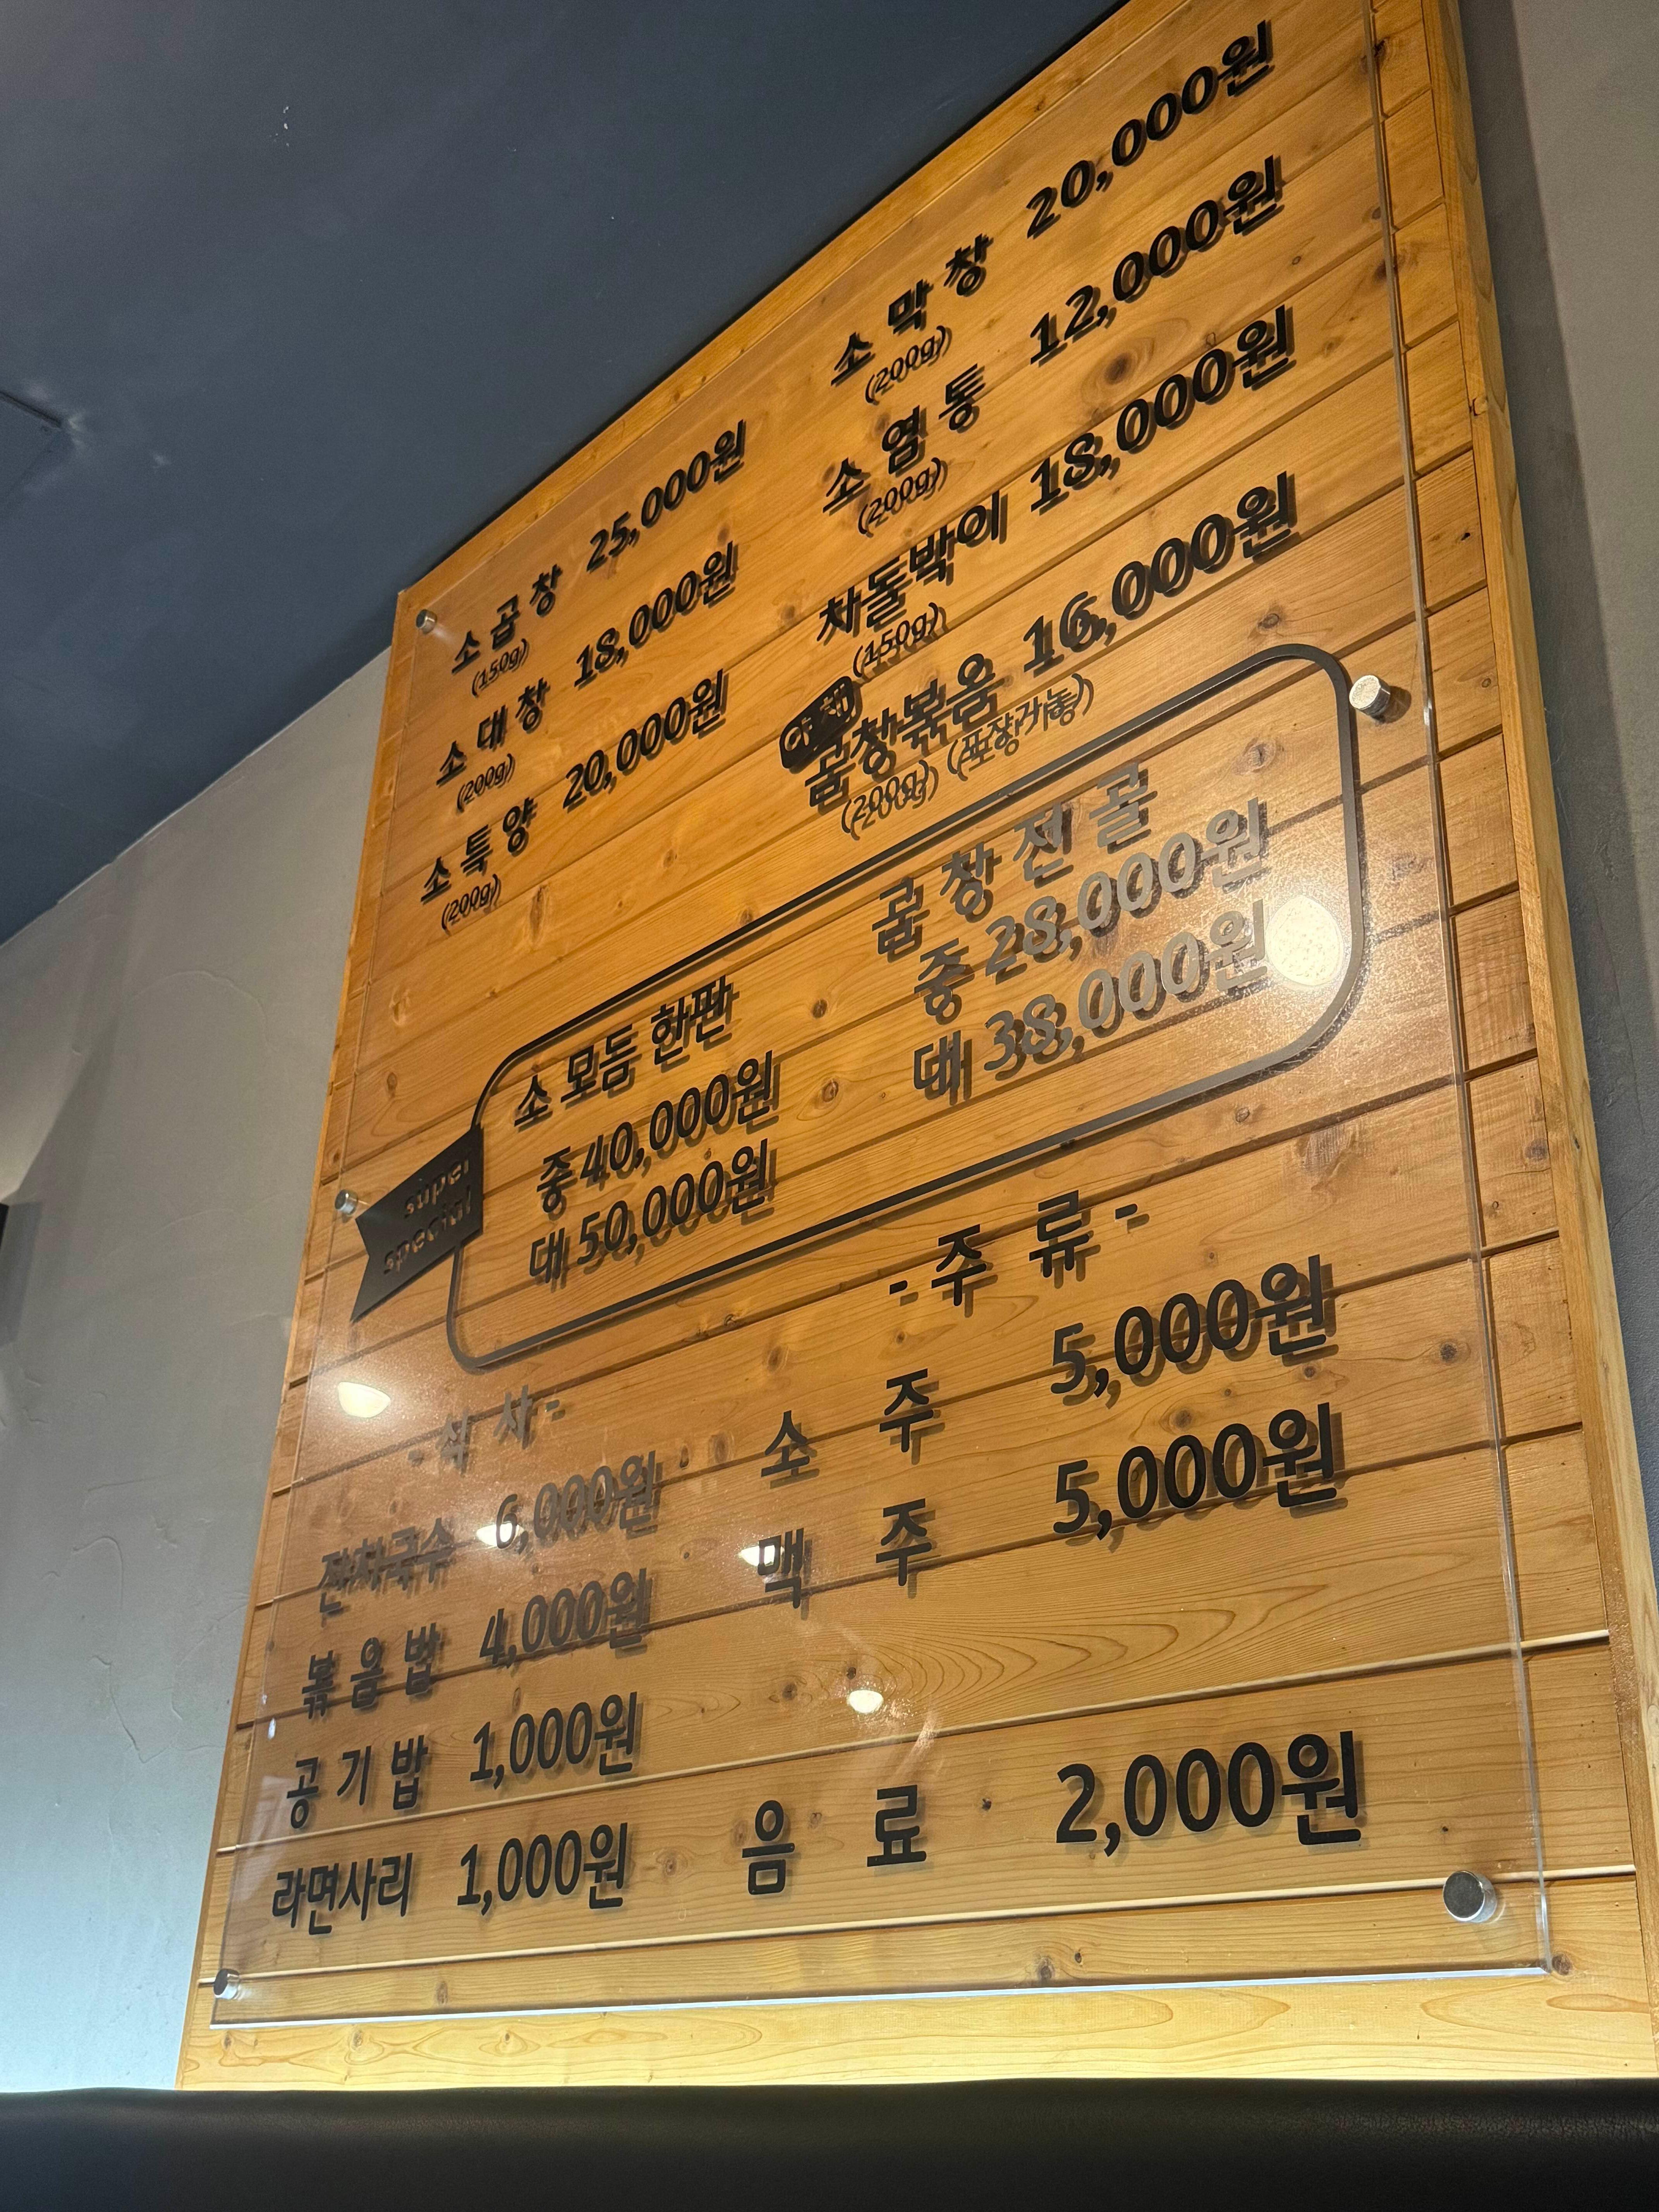 소곱창 25,000원
(150g)
소대창 18,000원
(200g)
소특양 20,000원
(200g)
소막창 20,000원
(200g)
소염통 12,000원
(200g)
차돌박이 18,000원
(150g)
야채
곱창볶음 16,000원
(200g) (포장가능)
super
special
소 모듬 한판
중 40,000원
대 50,000원
곱창전골
중 28,000원
대 38,000원
- 식 사 -
잔치국수 6,000원
볶음밥 4,000원
공기밥 1,000원
라면사리 1,000원
- 주 류 -
소 주 5,000원
맥 주 5,000원
음 료 2,000원